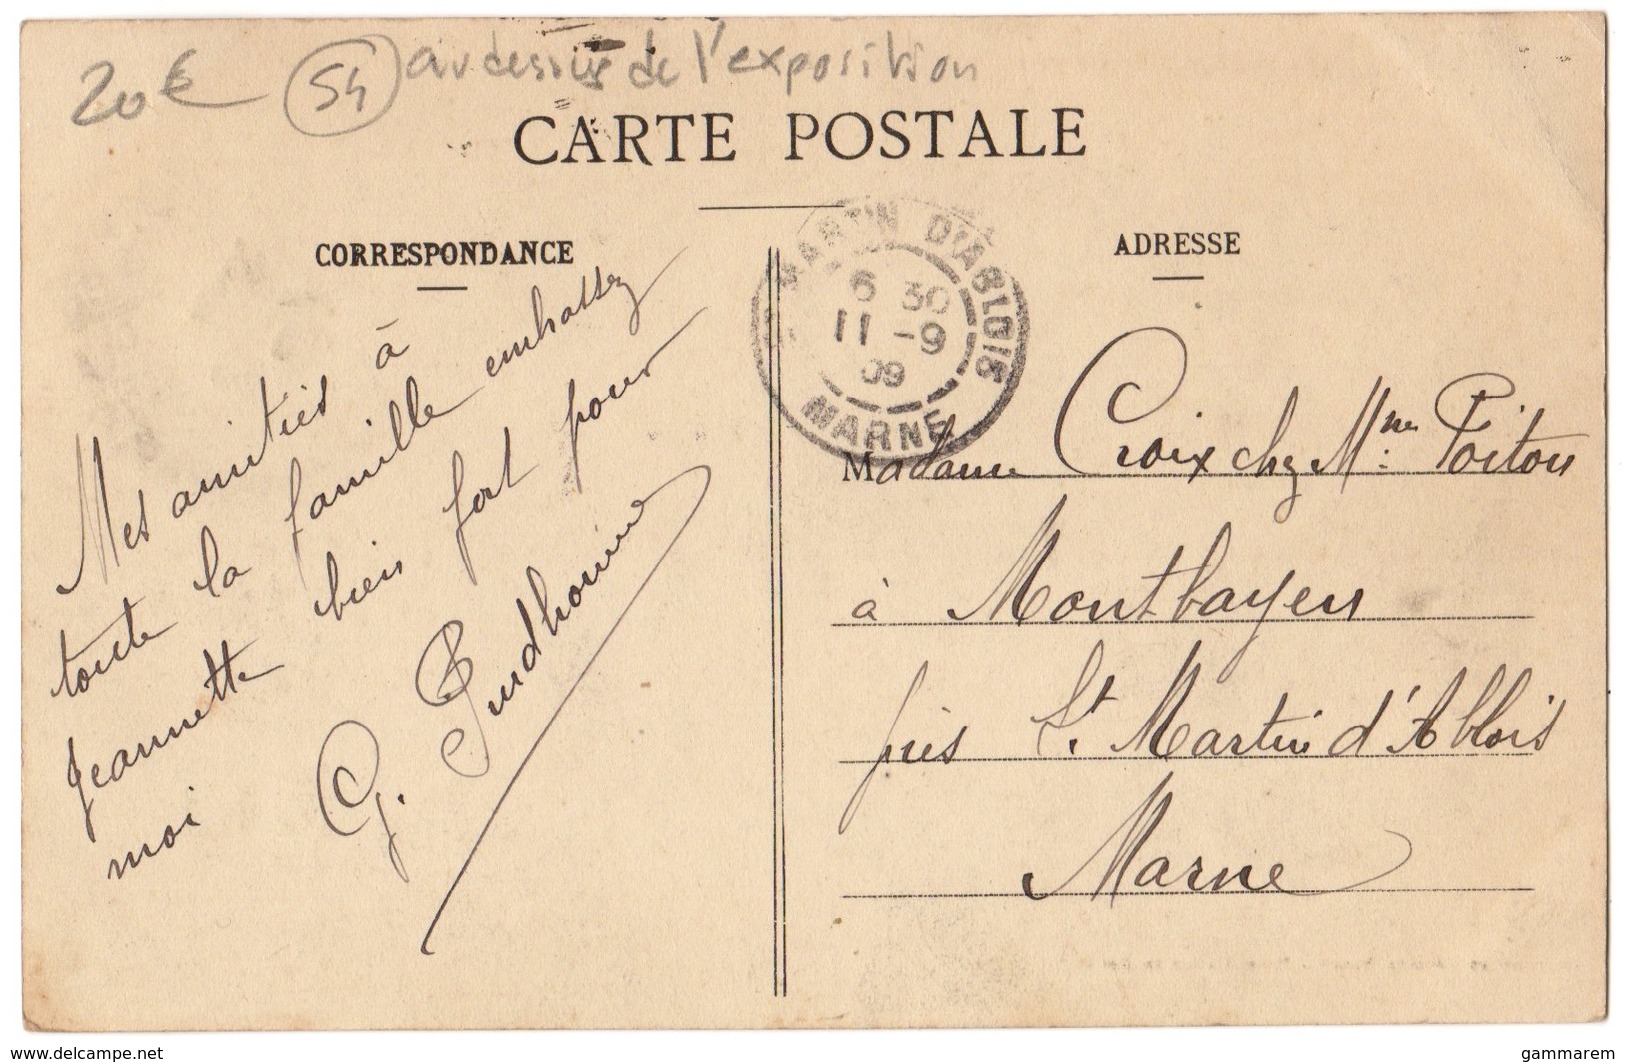 20€ 54 au dessus de l'exposition
CARTE POSTALE
CORRESPONDANCE
Mes amitiés à
toute la famille embrassez
Jeannette bien fort pour
moi
G. Prudhomme
MARTIN D'ABLOIS
6 30
11 -9
09
MARNE
ADRESSE
Madame Croix chez Mme Poiton
à Montbayen
près St Martin d'Ablois
Marne
www.delcampe.net
gammarem